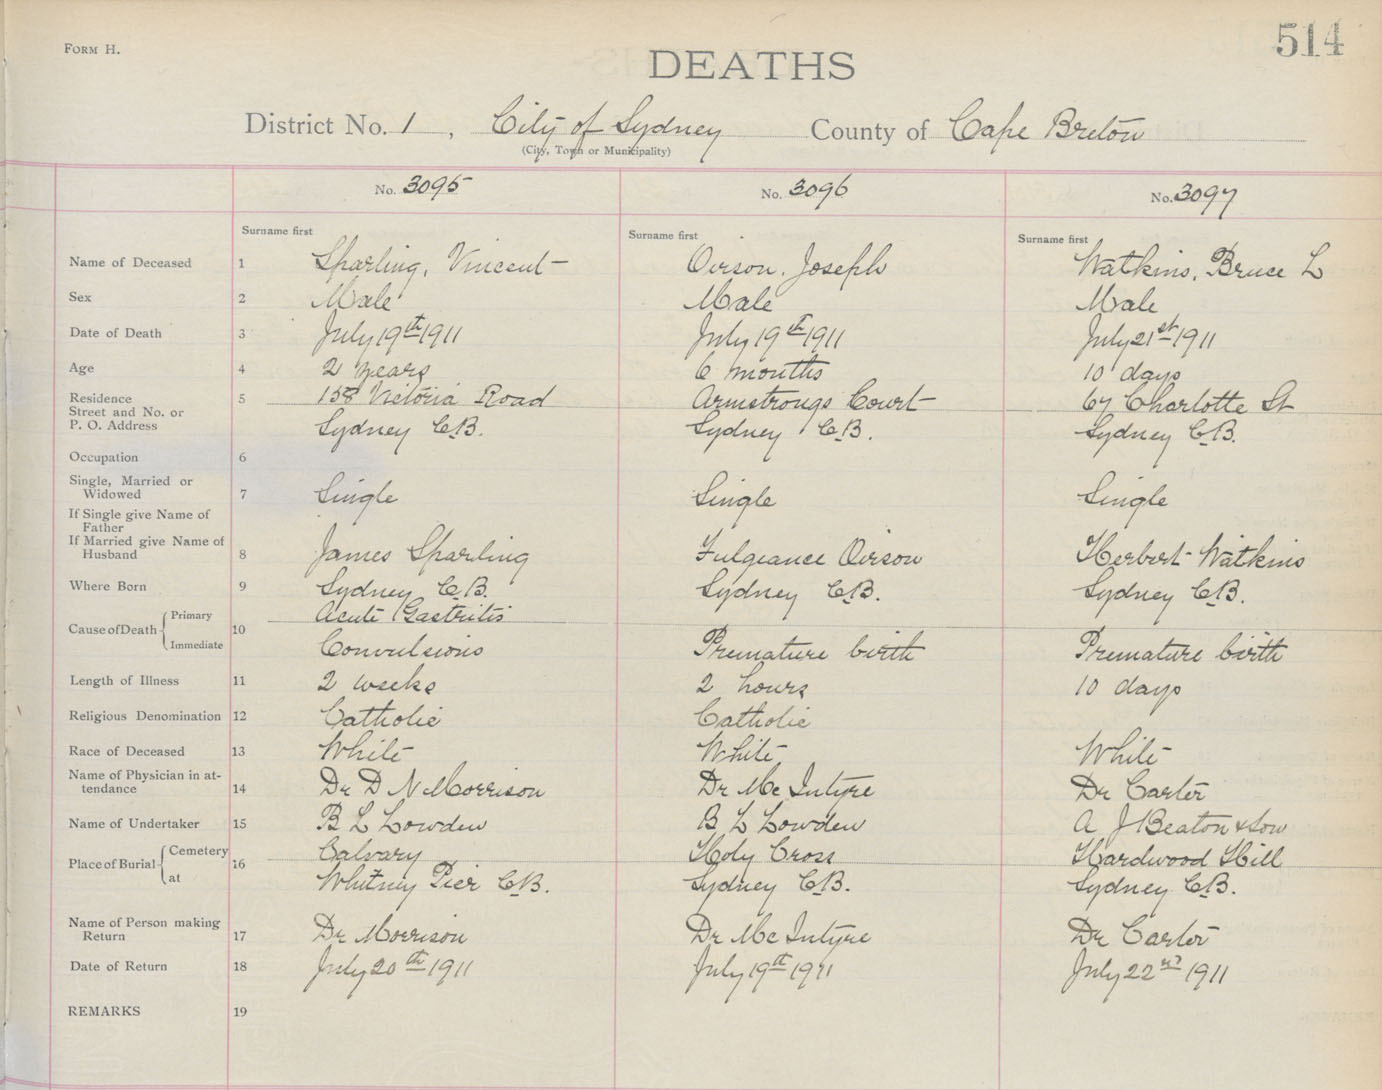 514
FORM H.
DEATHS
District No. 1, City of Sydney County of Cape Breton
(City, Town or Municipality)
No. 3095 No. 3096 No. 3097
Surname first Surname first Surname first
Name of Deceased 1 Sparling, Vincent Oirson, Joseph Watkins, Bruce L
Sex 2 Male Male Male
Date of Death 3 July 19th 1911 July 19th 1911 July 21st 1911
Age 4 2 years 6 months 10 days
Residence 5 158 Victoria Road Armstrongs Court 67 Charlotte St
Street and No. or
P. O. Address Sydney C.B. Sydney C.B. Sydney C.B.
Occupation 6
Single, Married or
Widowed 7 Single Single Single
If Single give Name of
Father
If Married give Name of
Husband 8 James Sparling Fulgeance Oirson Herbert Watkins
Where Born 9 Sydney C.B. Sydney C.B. Sydney C.B.
Cause of Death Primary 10 Acute Gastritis
Immediate Convulsions Premature birth Premature birth
Length of Illness 11 2 weeks 2 hours 10 days
Religious Denomination 12 Catholic Catholic
Race of Deceased 13 White White White
Name of Physician in at-
tendance 14 Dr D N Morrison Dr McIntyre Dr Carter
Name of Undertaker 15 B L Lowden B L Lowden A J Beaton & Son
Place of Burial Cemetery 16 Calvary Holy Cross Hardwood Hill
at Whitney Pier C.B. Sydney C.B. Sydney C.B.
Name of Person making
Return 17 Dr Morrison Dr McIntyre Dr Carter
Date of Return 18 July 20th 1911 July 19th 1911 July 22nd 1911
REMARKS 19